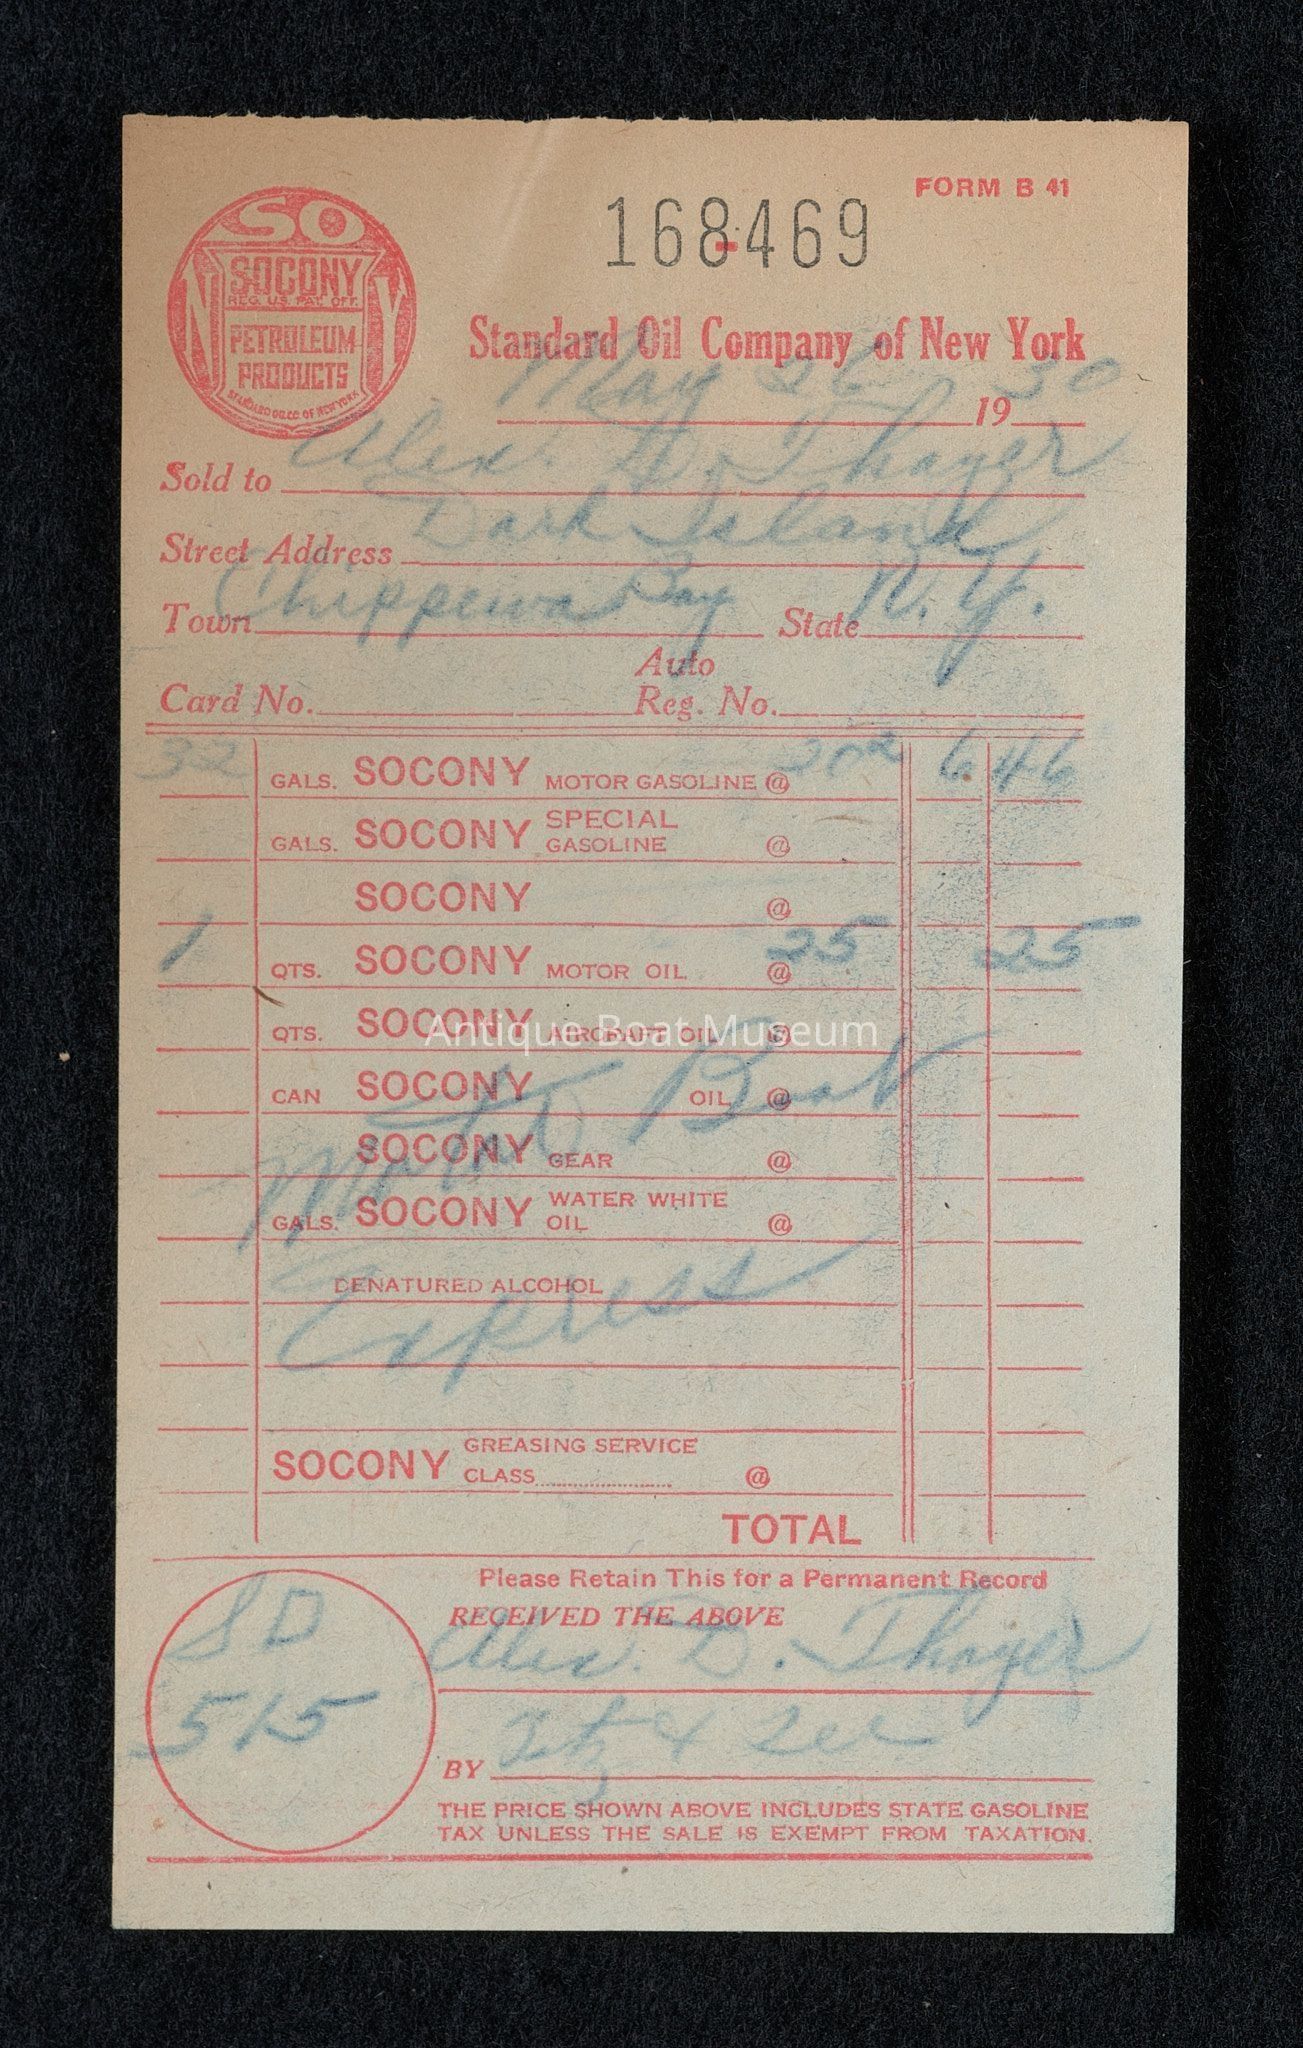 FORM B 41
168469
SO
NY
SOCONY
REG. U.S. PAT. OFF.
PETROLEUM
PRODUCTS
STANDARD OIL CO. OF NEW YORK
Standard Oil Company of New York
May 26 1930
Sold to Alex. D. Thayer
Street Address Dark Island
Town Chippewa Bay State N.Y.
Auto
Card No. Reg. No.
32 GALS. SOCONY MOTOR GASOLINE @ 20² 6 46
GALS. SOCONY SPECIAL GASOLINE @
SOCONY @
1 QTS. SOCONY MOTOR OIL @ 25 25
QTS. SOCONY AIRCRAFT OIL @
Antique Boat Museum
CAN SOCONY OIL @
Motor Boat
SOCONY GEAR @
GALS. SOCONY WATER WHITE OIL @
DENATURED ALCOHOL
Express
SOCONY GREASING SERVICE
CLASS @
TOTAL
Please Retain This for a Permanent Record
RECEIVED THE ABOVE
SD
515
Alex. D. Thayer
BY
THE PRICE SHOWN ABOVE INCLUDES STATE GASOLINE
TAX UNLESS THE SALE IS EXEMPT FROM TAXATION.